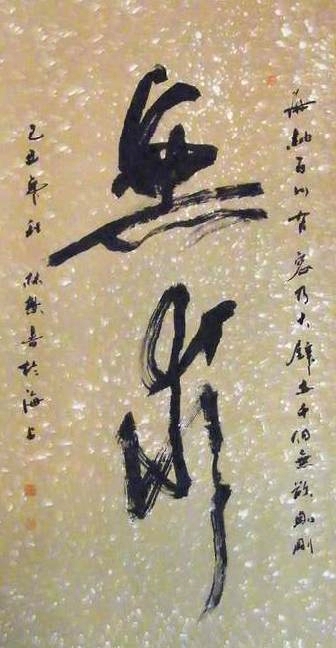 海納百川有容乃大壁立千仞無欲則剛
無
己丑年秋 林於海上